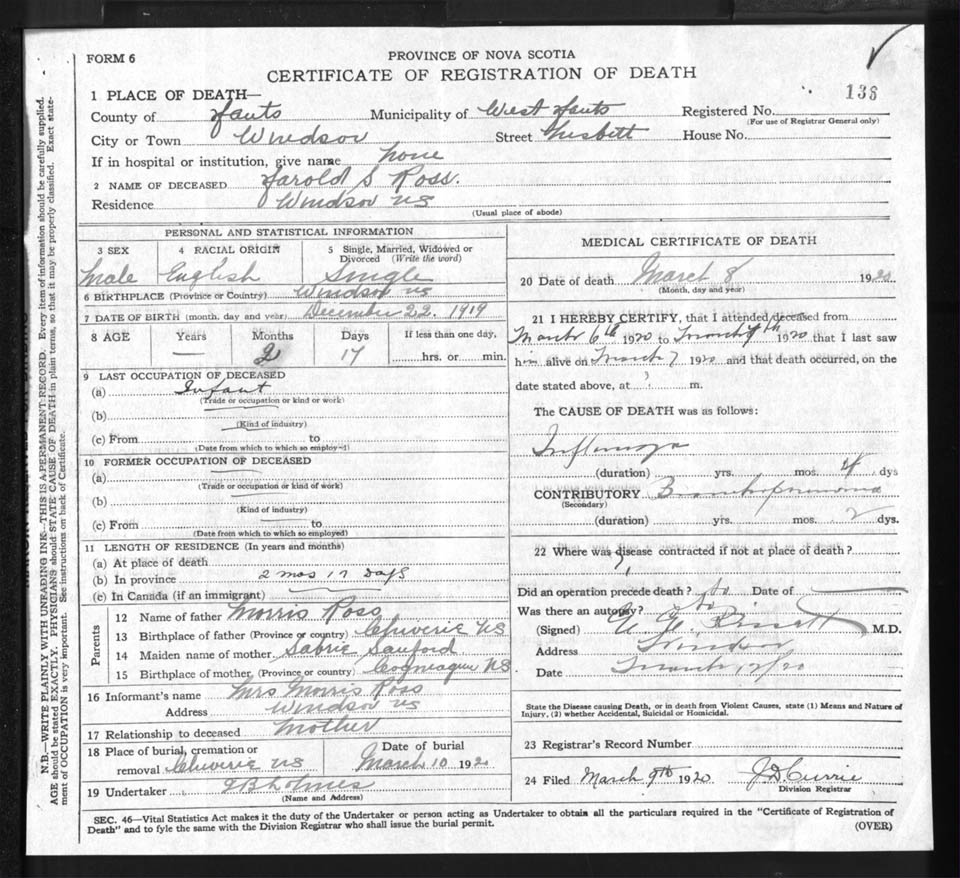 FORM 6
PROVINCE OF NOVA SCOTIA
CERTIFICATE OF REGISTRATION OF DEATH
138
1 PLACE OF DEATH—
County of Hants Municipality of West Hants Registered No.
(For use of Registrar General only)
City or Town Windsor Street Nesbett House No.
If in hospital or institution, give name none
2 NAME OF DECEASED Harold S Ross.
Residence Windsor NS
(Usual place of abode)
PERSONAL AND STATISTICAL INFORMATION
3 SEX 4 RACIAL ORIGIN 5 Single, Married, Widowed or Divorced (Write the word)
Male English Single
6 BIRTHPLACE (Province or Country) Windsor NS
7 DATE OF BIRTH (month, day and year) December 22. 1919
8 AGE Years Months Days If less than one day,
— 2 17 hrs. or min.
9 LAST OCCUPATION OF DECEASED
(a) Infant
(Trade or occupation or kind or work)
(b)
(Kind of industry)
(c) From to
(Date from which to which so employed)
10 FORMER OCCUPATION OF DECEASED
(a)
(Trade or occupation or kind of work)
(b)
(Kind of industry)
(c) From to
(Date from which to which so employed)
11 LENGTH OF RESIDENCE (In years and months)
(a) At place of death
(b) In province 2 mos 17 Days
(c) In Canada (if an immigrant)
Parents
12 Name of father Morris Ross
13 Birthplace of father (Province or country) Cheverie NS
14 Maiden name of mother Sabrie Sanford
15 Birthplace of mother (Province or country) NS
16 Informant's name Mrs Morris Ross
Address Windsor NS
17 Relationship to deceased Mother
18 Place of burial, cremation or removal Cheverie NS
Date of burial March 10 1920
19 Undertaker Holmes
(Name and Address)
MEDICAL CERTIFICATE OF DEATH
20 Date of death March 8 1920
(Month, day and year)
21 I HEREBY CERTIFY, that I attended deceased from
March 6th 1920 to March 7th 1920 that I last saw
him alive on March 7 1920 and that death occurred, on the
date stated above, at ? m.
The CAUSE OF DEATH was as follows:
Influenza
(duration) yrs. mos. 4 dys
CONTRIBUTORY Bronchopneumonia
(Secondary)
(duration) yrs. mos. 2 dys.
22 Where was disease contracted if not at place of death?
?
Did an operation precede death? No Date of —
Was there an autopsy? No
(Signed) Bissett M.D.
Address Windsor
Date March /20
State the Disease causing Death, or in death from Violent Causes, state (1) Means and Nature of
Injury, (2) whether Accidental, Suicidal or Homicidal.
23 Registrar's Record Number
24 Filed March 9th 1920 J D Currie
Division Registrar
SEC. 46—Vital Statistics Act makes it the duty of the Undertaker or person acting as Undertaker to obtain all the particulars required in the "Certificate of Registration of
Death" and to fyle the same with the Division Registrar who shall issue the burial permit.
(OVER)
N.B.—WRITE PLAINLY WITH UNFADING INK—THIS IS A PERMANENT RECORD. Every item of information should be carefully supplied.
AGE should be stated EXACTLY. PHYSICIANS should STATE CAUSE OF DEATH in plain terms, so that it may be properly classified. Exact statement
of OCCUPATION is very important. See instructions on back of Certificate.